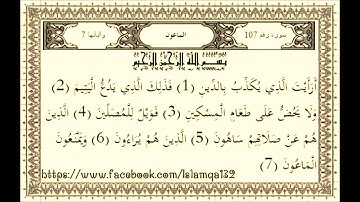 سورة رقم 107
الماعون
وآياتها 7
بِسْمِ اللَّهِ الرَّحْمَٰنِ الرَّحِيمِ
أَرَأَيْتَ الَّذِي يُكَذِّبُ بِالدِّينِ (1) فَذَلِكَ الَّذِي يَدُعُّ الْيَتِيمَ (2)
وَلَا يَحُضُّ عَلَى طَعَامِ الْمِسْكِينِ (3) فَوَيْلٌ لِلْمُصَلِّينَ (4) الَّذِينَ
هُمْ عَنْ صَلَاتِهِمْ سَاهُونَ (5) الَّذِينَ هُمْ يُرَاءُونَ (6) وَيَمْنَعُونَ
الْمَاعُونَ (7)
https://www.facebook.com/Islamqa132